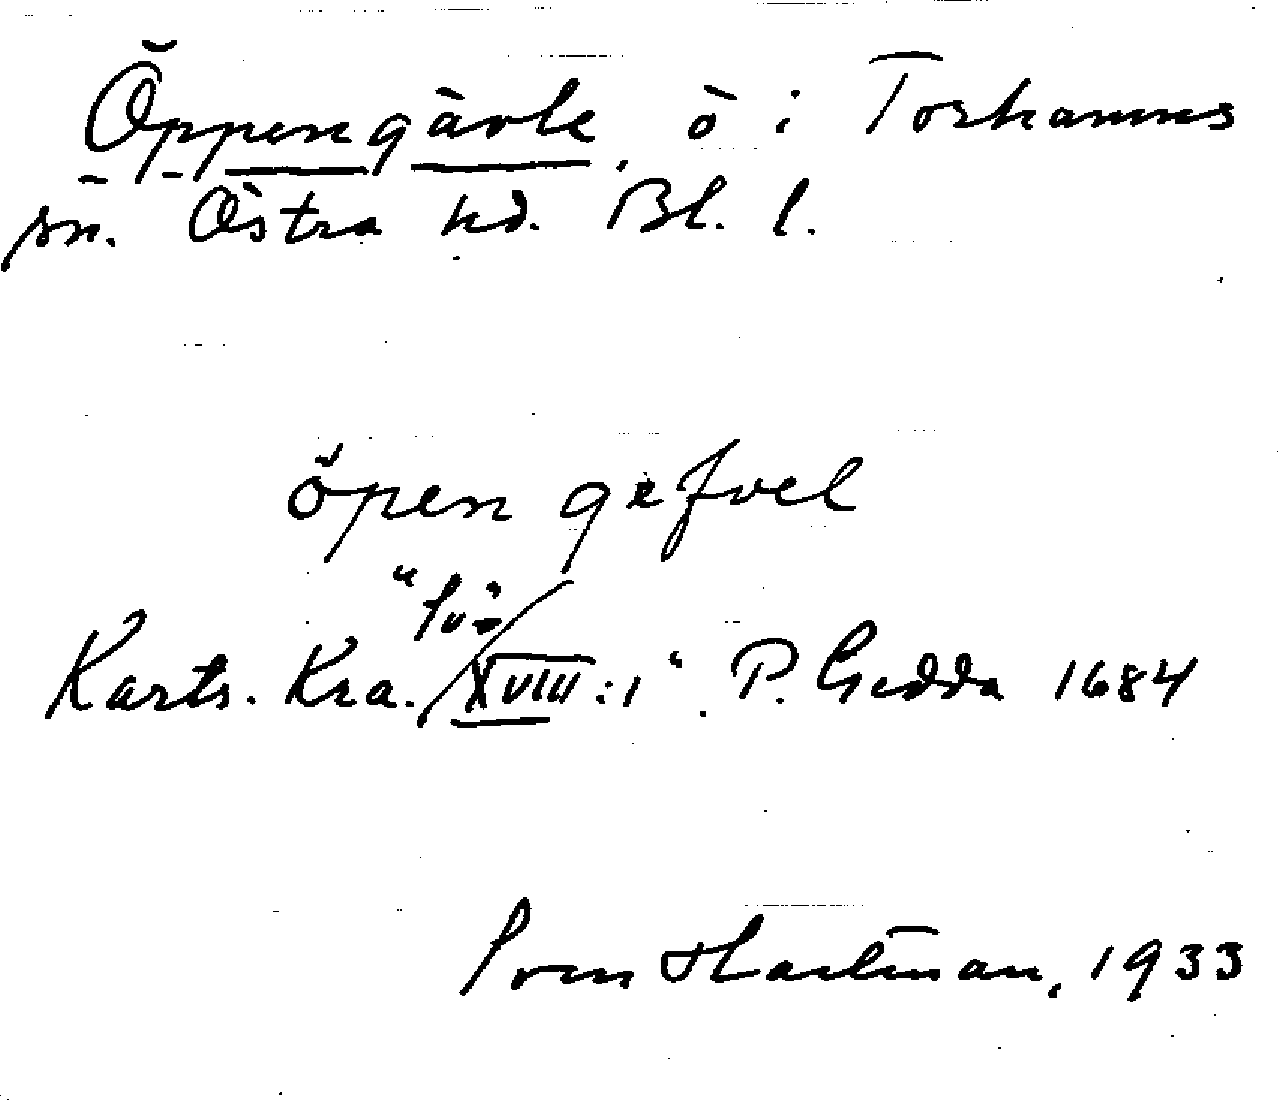 Öppengävle, ö i Torhamns
sn. Östra hd. Bl. l.
öpen gefvel
Karts. Kra. XVIII:1". P. Gedda 1684
Sven Hartman, 1933